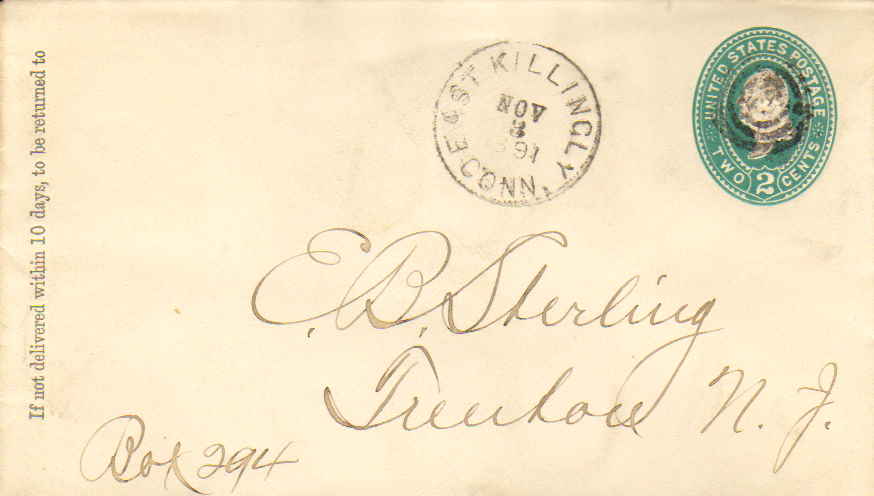 If not delivered within 10 days, to be returned to
EAST KILLINGLY
NOV
91
CONN.
UNITED STATES POSTAGE
TWO 2 CENTS
E. B. Sterling
Trenton N. J.
Box 294